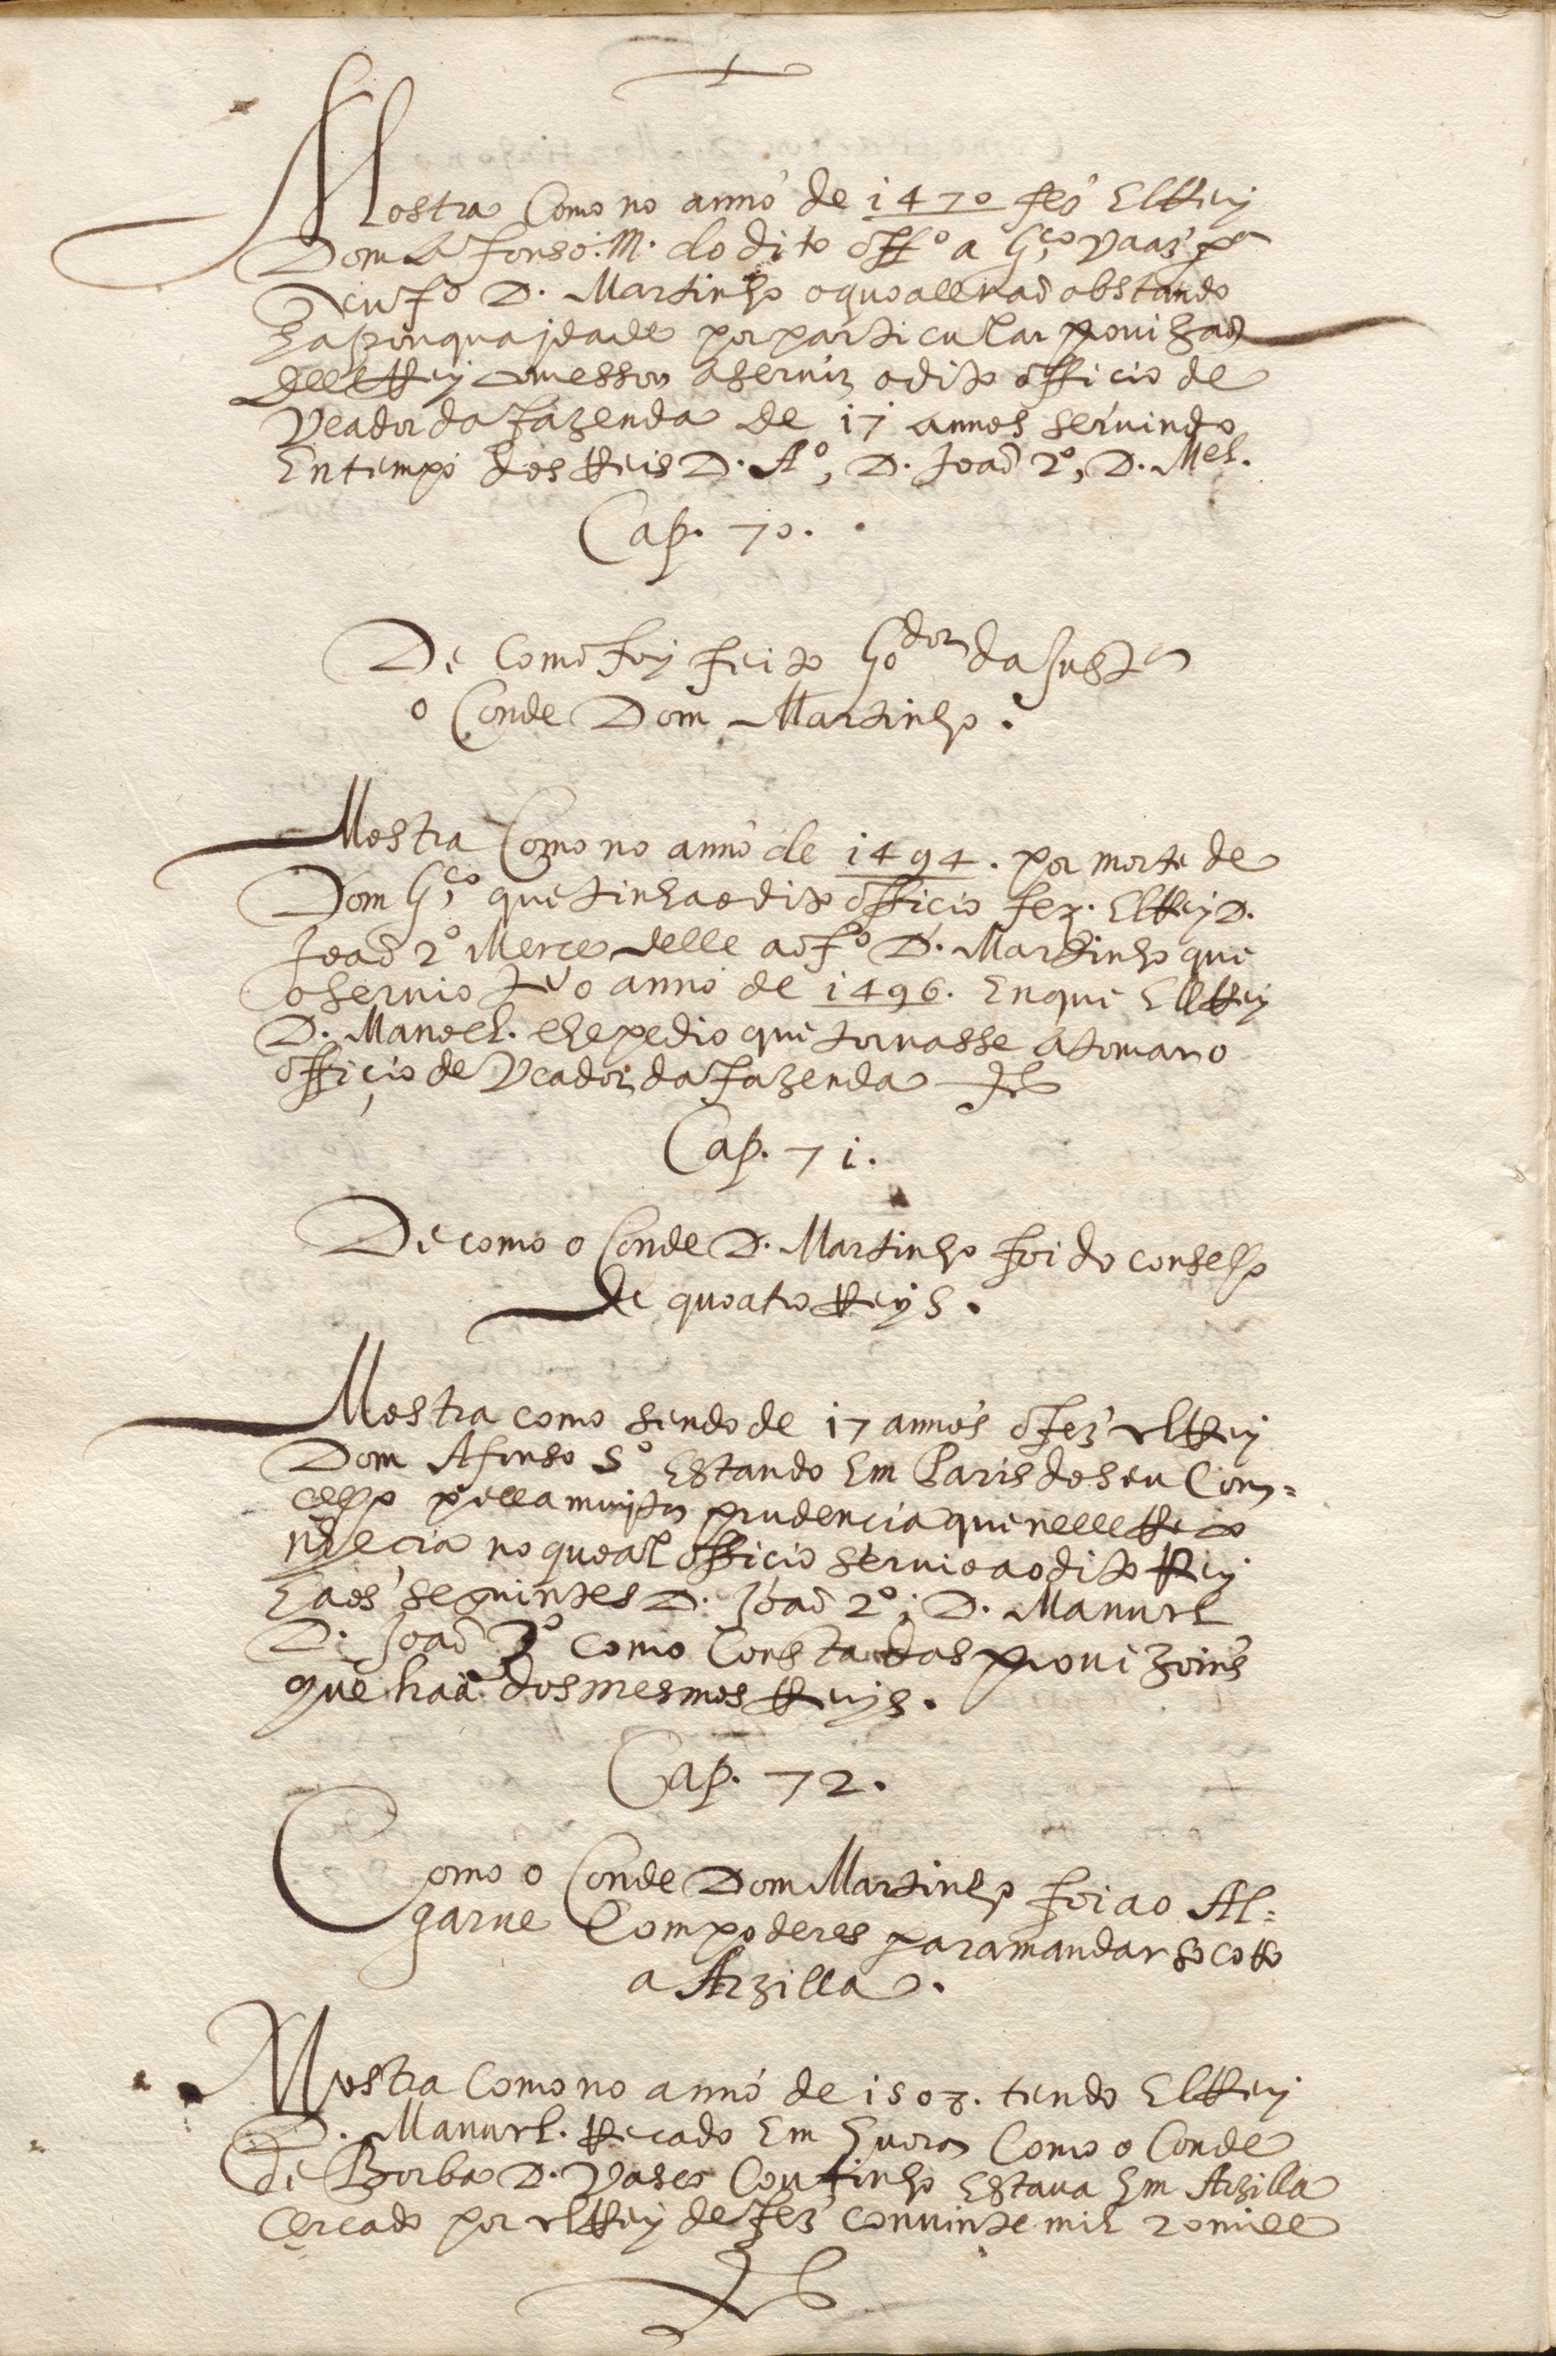 Mostra Como no anno de 1470 fes ElRey
Dom Afonso. M. do dito off.º a G.ço Vaaz p.ª
seu f.º D. Martinho o quoall nao obstando
ha pouqua jdade por particular provizao
dellRey comessou a servir o dito officio de
Veador da fazenda de 17 annos servindo
Em tempo dos Reis D. A.º, D. Joao 2º, D. Mel.
Cap. 70.
De como foy feito Go.dor da Just.ª
o Conde Dom Martinho.
Mostra Como no anno de 1494. por morte de
Dom G.ço que tinha o dito officio fez. ElRey D.
Joao 2º Merce delle ao f.º D. Martinho que
o servio te o anno de 1496. Em que ElRey
D. Manoel. lhe pedio que tornasse a tomar o
officio de Veador da fazenda
Cap. 71.
De como o Conde D. Martinho foi do conselho
de quoatro Reys.
Mostra como sendo de 17 annos o fez elRey
Dom Afonso 5º Estando Em Paris do seu Con=
celho pella muyta prudencia que nelle Reco
nhecia no quoal officio servio ao dito Rey
E aos seguintes D. Joao 2º; D. Manuel
D. Joao 3º como Consta das provizoins
que haa dos mesmos Reys.
Cap. 72.
Como o Conde Dom Martinho foi ao Al=
garve Com poderes para mandar socorro
a Arzilla.
Mostra Como no anno de 1508. tendo ElRey
D. Manuel. Recado Em Evora Como o Conde
de Borba D. Vasco Coutinho Estava Em Arzilla
Cercado por elRey de Fez con vinte mil 20 mill